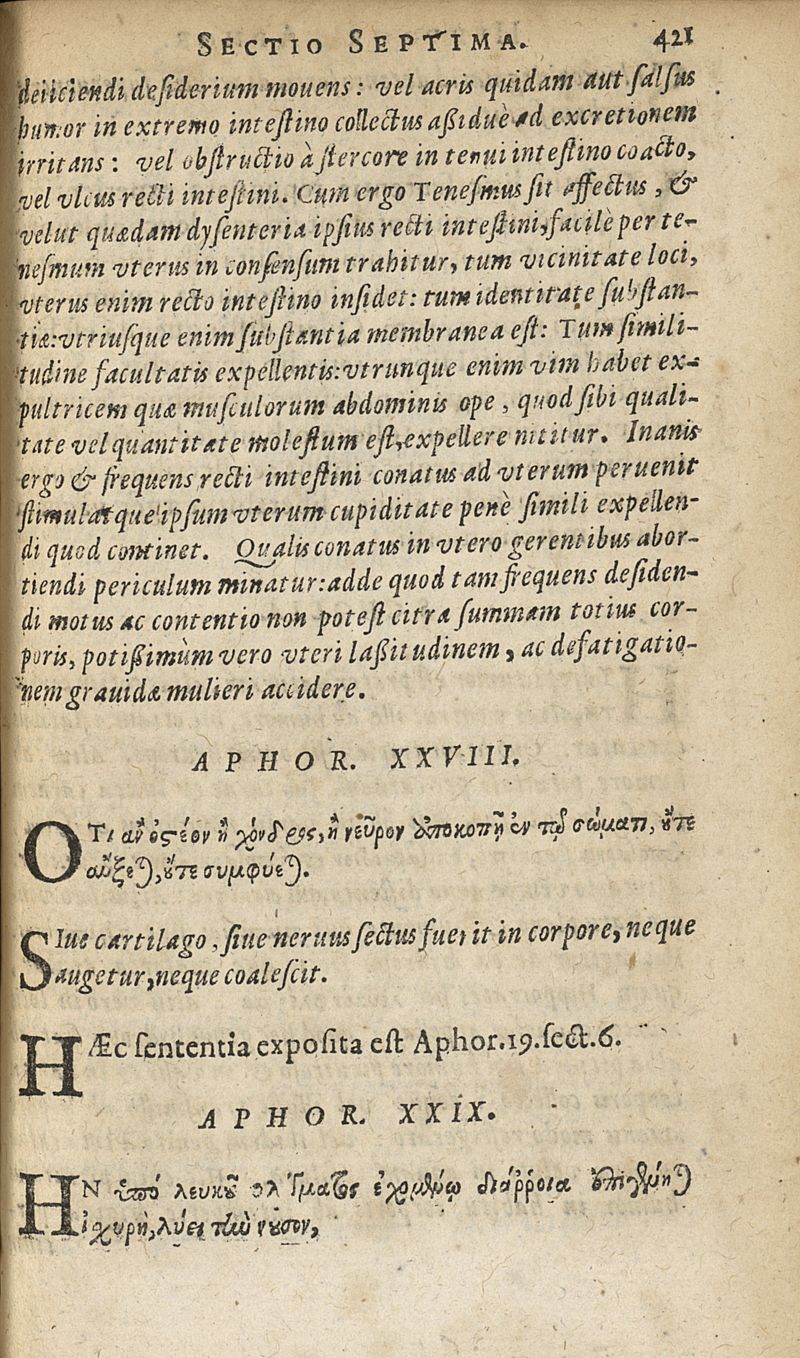 SECTIO SEPTIMA. 421
deiiciendi desiderium mouens: vel acris quidam aut salsus
humor in extremo intestino collectus aßiduè ad excretionem
irritans: vel obstructio à stercore in tenui intestino coacto,
vel vlcus recti intestini. Cum ergo Tenesmus sit affectus, &
velut quædam dysenteria ipsius recti intestini, facilè per te-
nesmum vterus in consensum trahitur, tum vicinitate loci,
vterus enim recto intestino insidet: tum identitate substan-
tiæ: vtriusque enim substantia membranea est: Tum simili-
tudine facultatis expellentis: vtrunque enim vim habet ex-
pultricem quæ musculorum abdominis ope, quod sibi quali-
tate vel quantitate molestum est, expellere nititur. Inanis
ergo & frequens recti intestini conatus ad vterum peruenit
stimulatque ipsum vterum cupiditate penè simili expellen-
di quod continet. Qualis conatus in vtero gerentibus abor-
tiendi periculum minatur: adde quod tam frequens desiden-
di motus ac contentio non potest citra summam totius cor-
poris, potißimùm vero vteri laßitudinem, ac defatigatio-
nem grauidæ mulieri accidere.
APHOR. XXVIII.
ΟΤι ἂν ὀστέον ἢ χόνδρος, ἢ νεῦρον ἀποκοπῇ ἐν τῷ σώματι, οὔτε
αὔξεται, οὔτε συμφύεται.
SIue cartilago, siue neruus sectus fuerit in corpore, neque
augetur, neque coalescit.
HÆc sententia exposita est Aphor. 19. sect. 6.
APHOR. XXIX.
ΗΝ ὑπό λευκοῦ φλέγματος ἐχομένῳ διάῤῥοια ἐπιγένηται
ἰσχυρὴ, λύει τὴν νοῦσον,